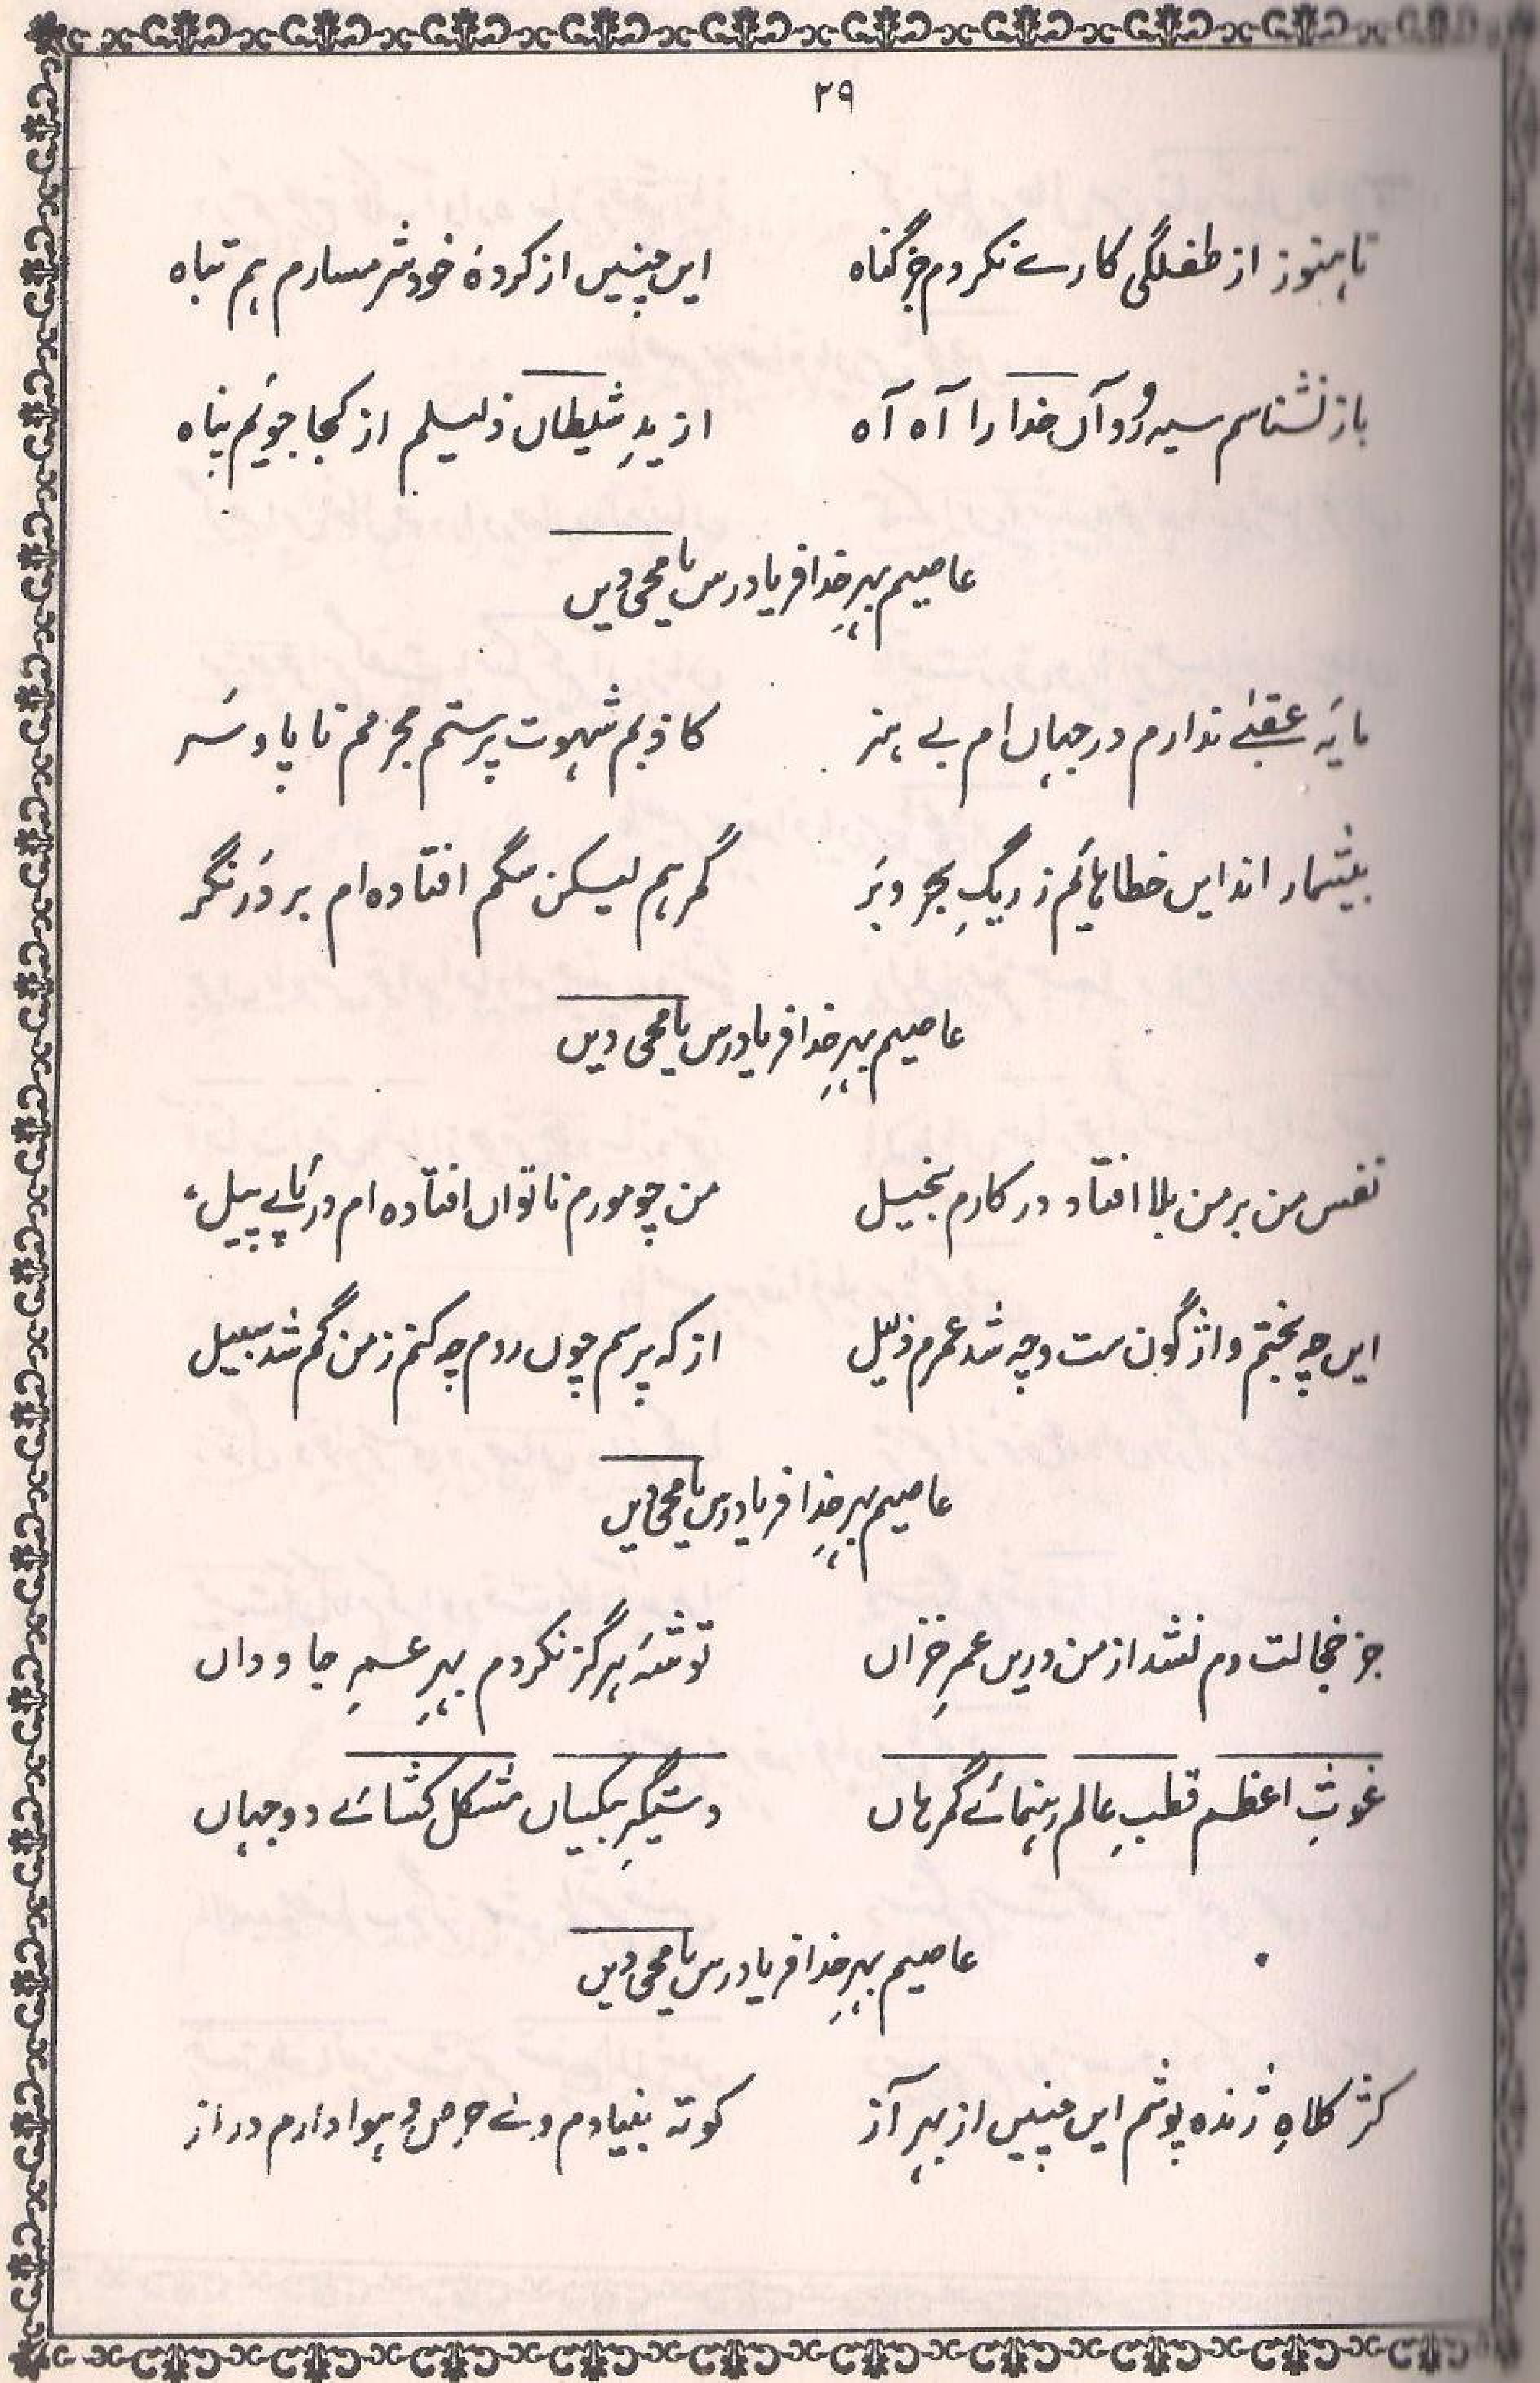 ۲۹
تا ہنوز از طفلگی کارے نکردم جز گناہ ایں چنیں از کردۂ خود شرمسارم ہم تباہ
باز نشناسم سیہ رُو آں خدا را آہ آہ از یدِ شیطاں ذلیلم از کجا جویَم پناہ
عاصیم بہرِ خدا فریاد رس یا محی دیں
مایَہ عقبےٰ ندارم در جہاں ام بے ہنر کاذبم شہوت پرستم مجرمم تا پا و سَر
بیشمار اند ایں خطاہایَم ز ریگِ بحر و بَر گمرہم لیکن سگم افتادہ ام بر دَر نگر
عاصیم بہرِ خدا فریاد رس یا محی دیں
نفس من بر من بلا افتاد در کارم بخیل من چو مورم ناتواں افتادہ ام در پَائے پیل
ایں چہ بختم واژگون ست و چہ شد عمرم ذلیل از کہ پرسم چوں روم چہ کنم ز من گم شد سبیل
عاصیم بہرِ خدا فریاد رس یا محی دیں
جز خجالت دم نشد از من دریں عمرِ خزاں توشَہ ہرگز نکردم بہرِ عمرِ جاوداں
غوثِ اعظم قطبِ عالم رہنمائے گمرہاں دستگیرِ بیکساں مشکل کشائے دو جہاں
عاصیم بہرِ خدا فریاد رس یا محی دیں
کژ کلاہِ ژندہ پوشم ایں چنیں از بہرِ آز کوتہ بنیادم ولے حرص و ہوا دارم دراز